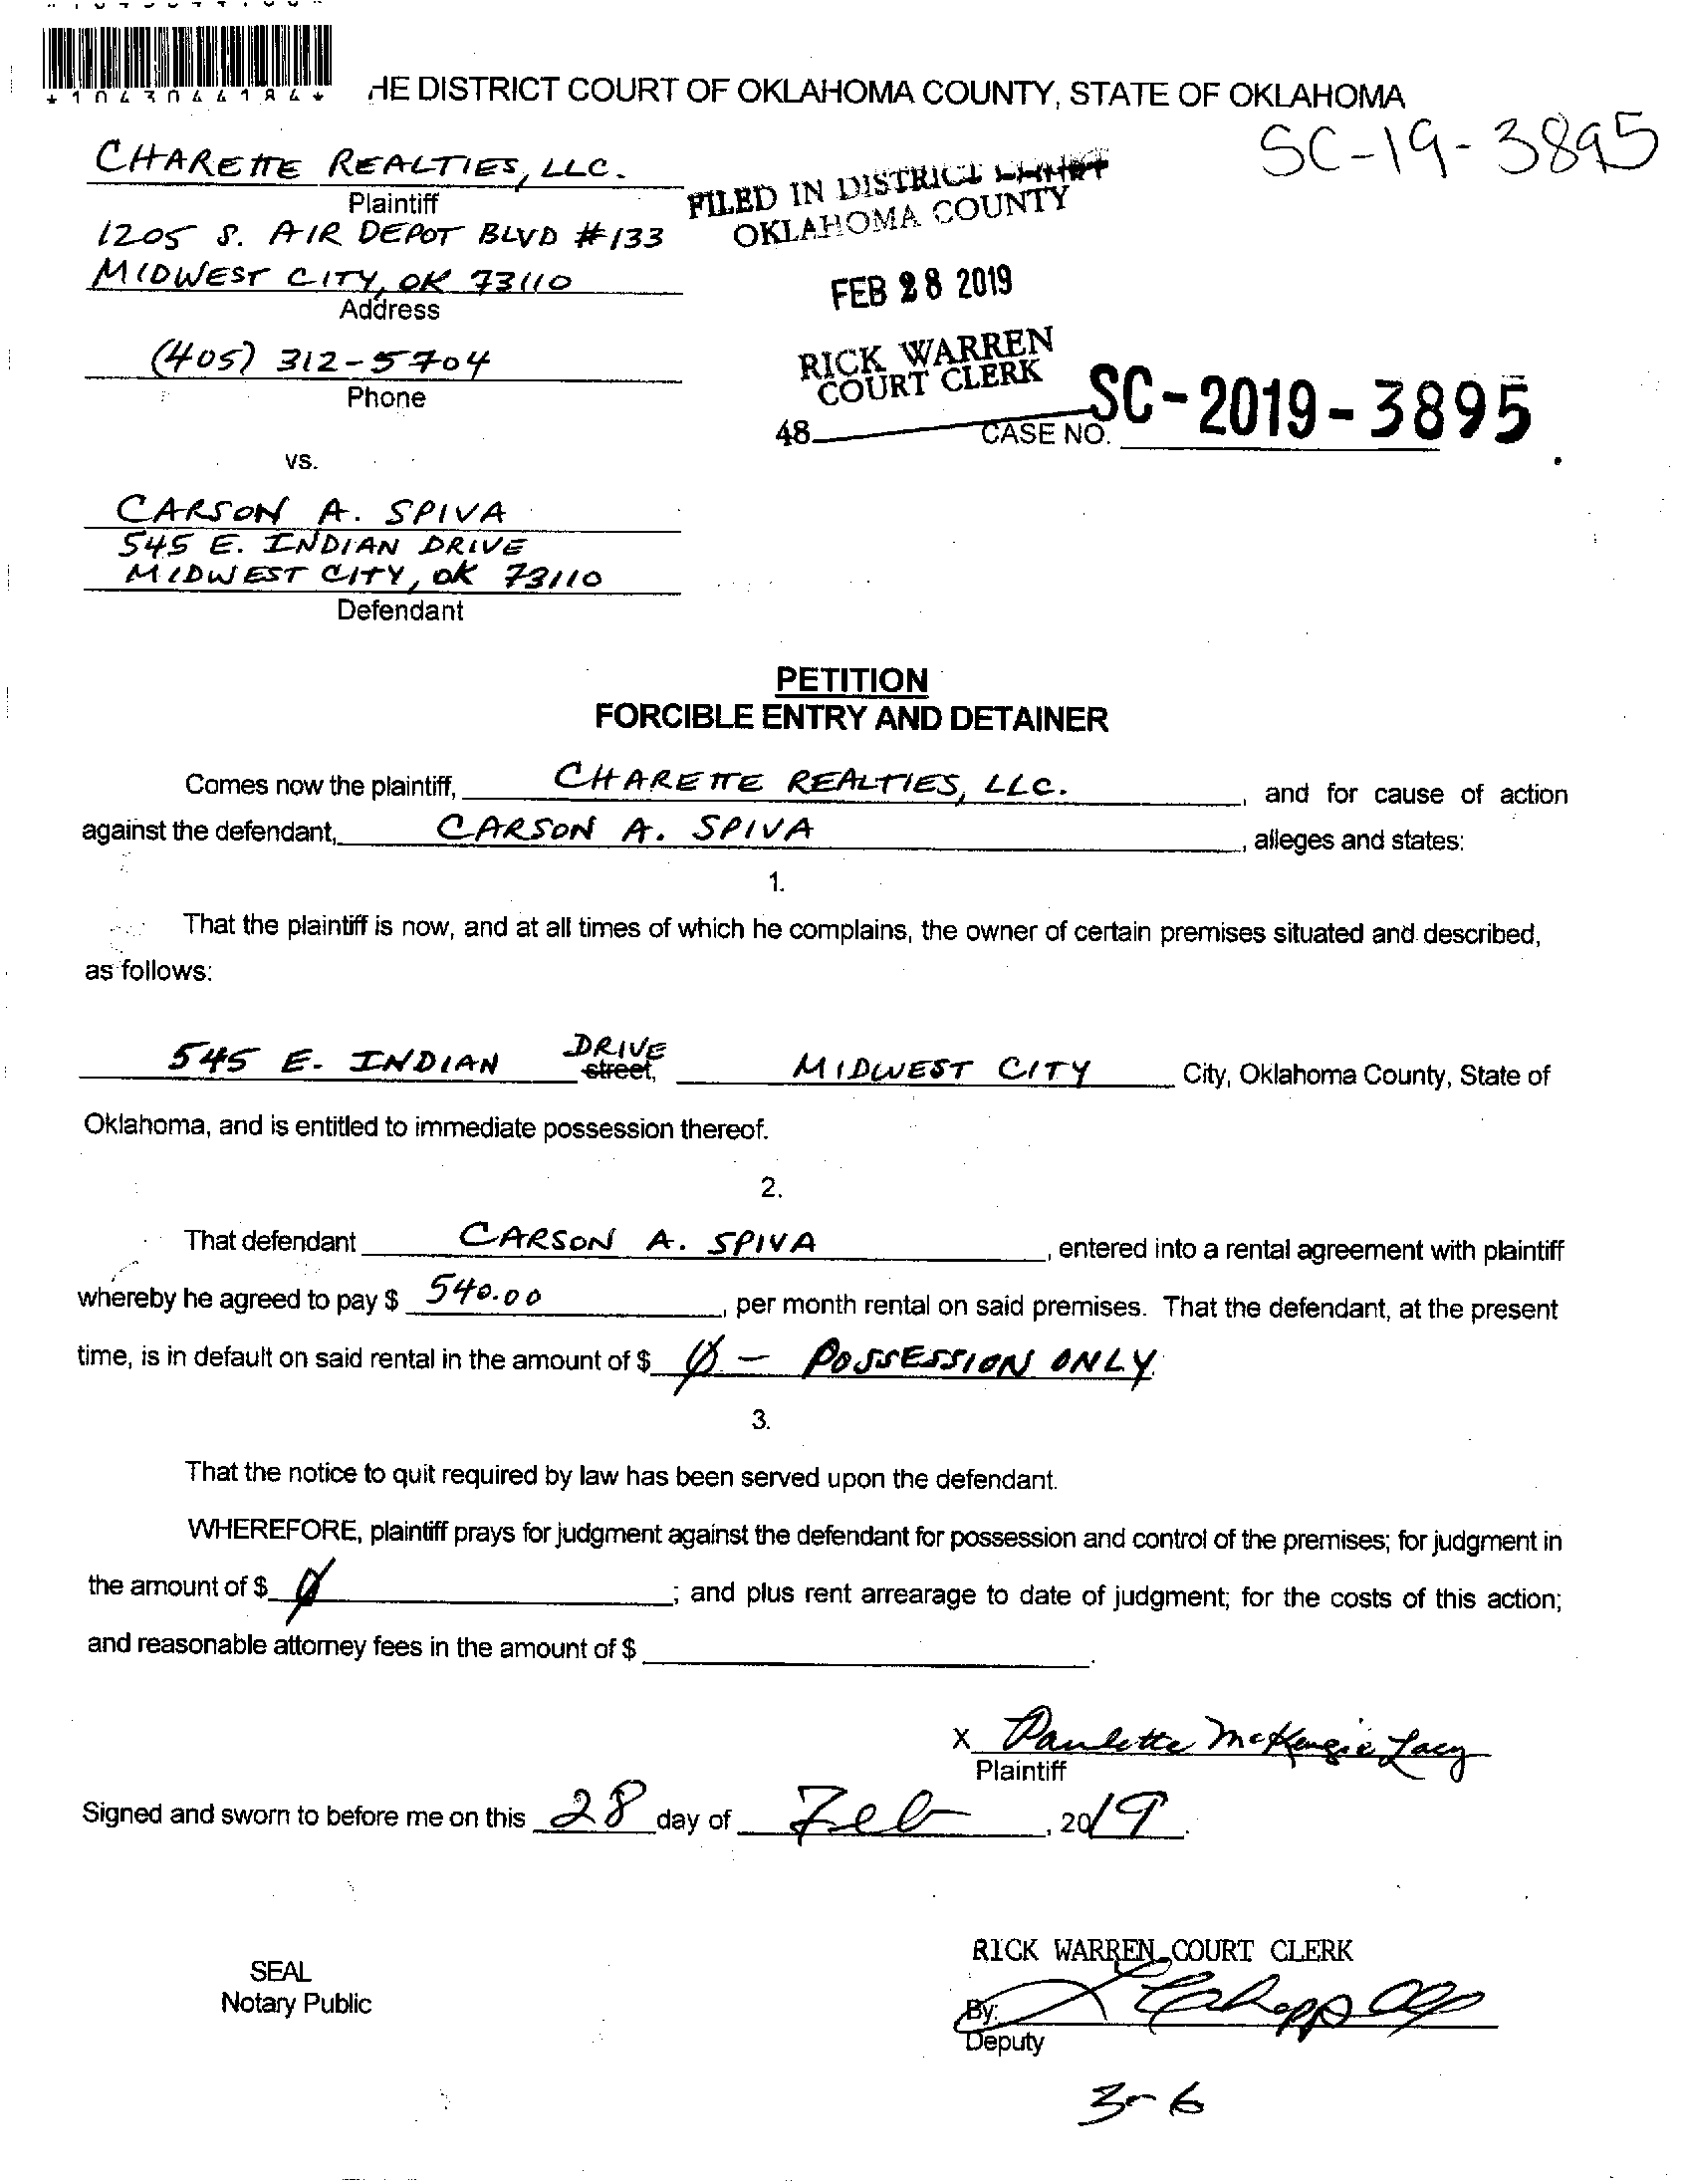 *1043044184*
HE DISTRICT COURT OF OKLAHOMA COUNTY, STATE OF OKLAHOMA
SC-19-3895
CHARETTE REALTIES, LLC.
Plaintiff
1205 S. AIR DEPOT BLVD #133
MIDWEST CITY, OK 73110
Address
(405) 312-5704
Phone
FILED IN DISTRICT COURT
OKLAHOMA COUNTY
FEB 28 2019
RICK WARREN
COURT CLERK
48
CASE NO. SC-2019-3895
vs.
CARSON A. SPIVA
545 E. INDIAN DRIVE
MIDWEST CITY, OK 73110
Defendant
PETITION
FORCIBLE ENTRY AND DETAINER
Comes now the plaintiff, CHARETTE REALTIES, LLC. , and for cause of action
against the defendant, CARSON A. SPIVA , alleges and states:
1.
That the plaintiff is now, and at all times of which he complains, the owner of certain premises situated and described,
as follows:
545 E. INDIAN DRIVE street, MIDWEST CITY City, Oklahoma County, State of
Oklahoma, and is entitled to immediate possession thereof.
2.
That defendant CARSON A. SPIVA , entered into a rental agreement with plaintiff
whereby he agreed to pay $ 540.00 , per month rental on said premises. That the defendant, at the present
time, is in default on said rental in the amount of $ 0 - POSSESSION ONLY.
3.
That the notice to quit required by law has been served upon the defendant.
WHEREFORE, plaintiff prays for judgment against the defendant for possession and control of the premises; for judgment in
the amount of $ 0 ; and plus rent arrearage to date of judgment; for the costs of this action;
and reasonable attorney fees in the amount of $ .
X Paulette McKenzie Lacy
Plaintiff
Signed and sworn to before me on this 28 day of Feb , 2019.
SEAL
Notary Public
RICK WARREN COURT CLERK
By:
Deputy
3-6